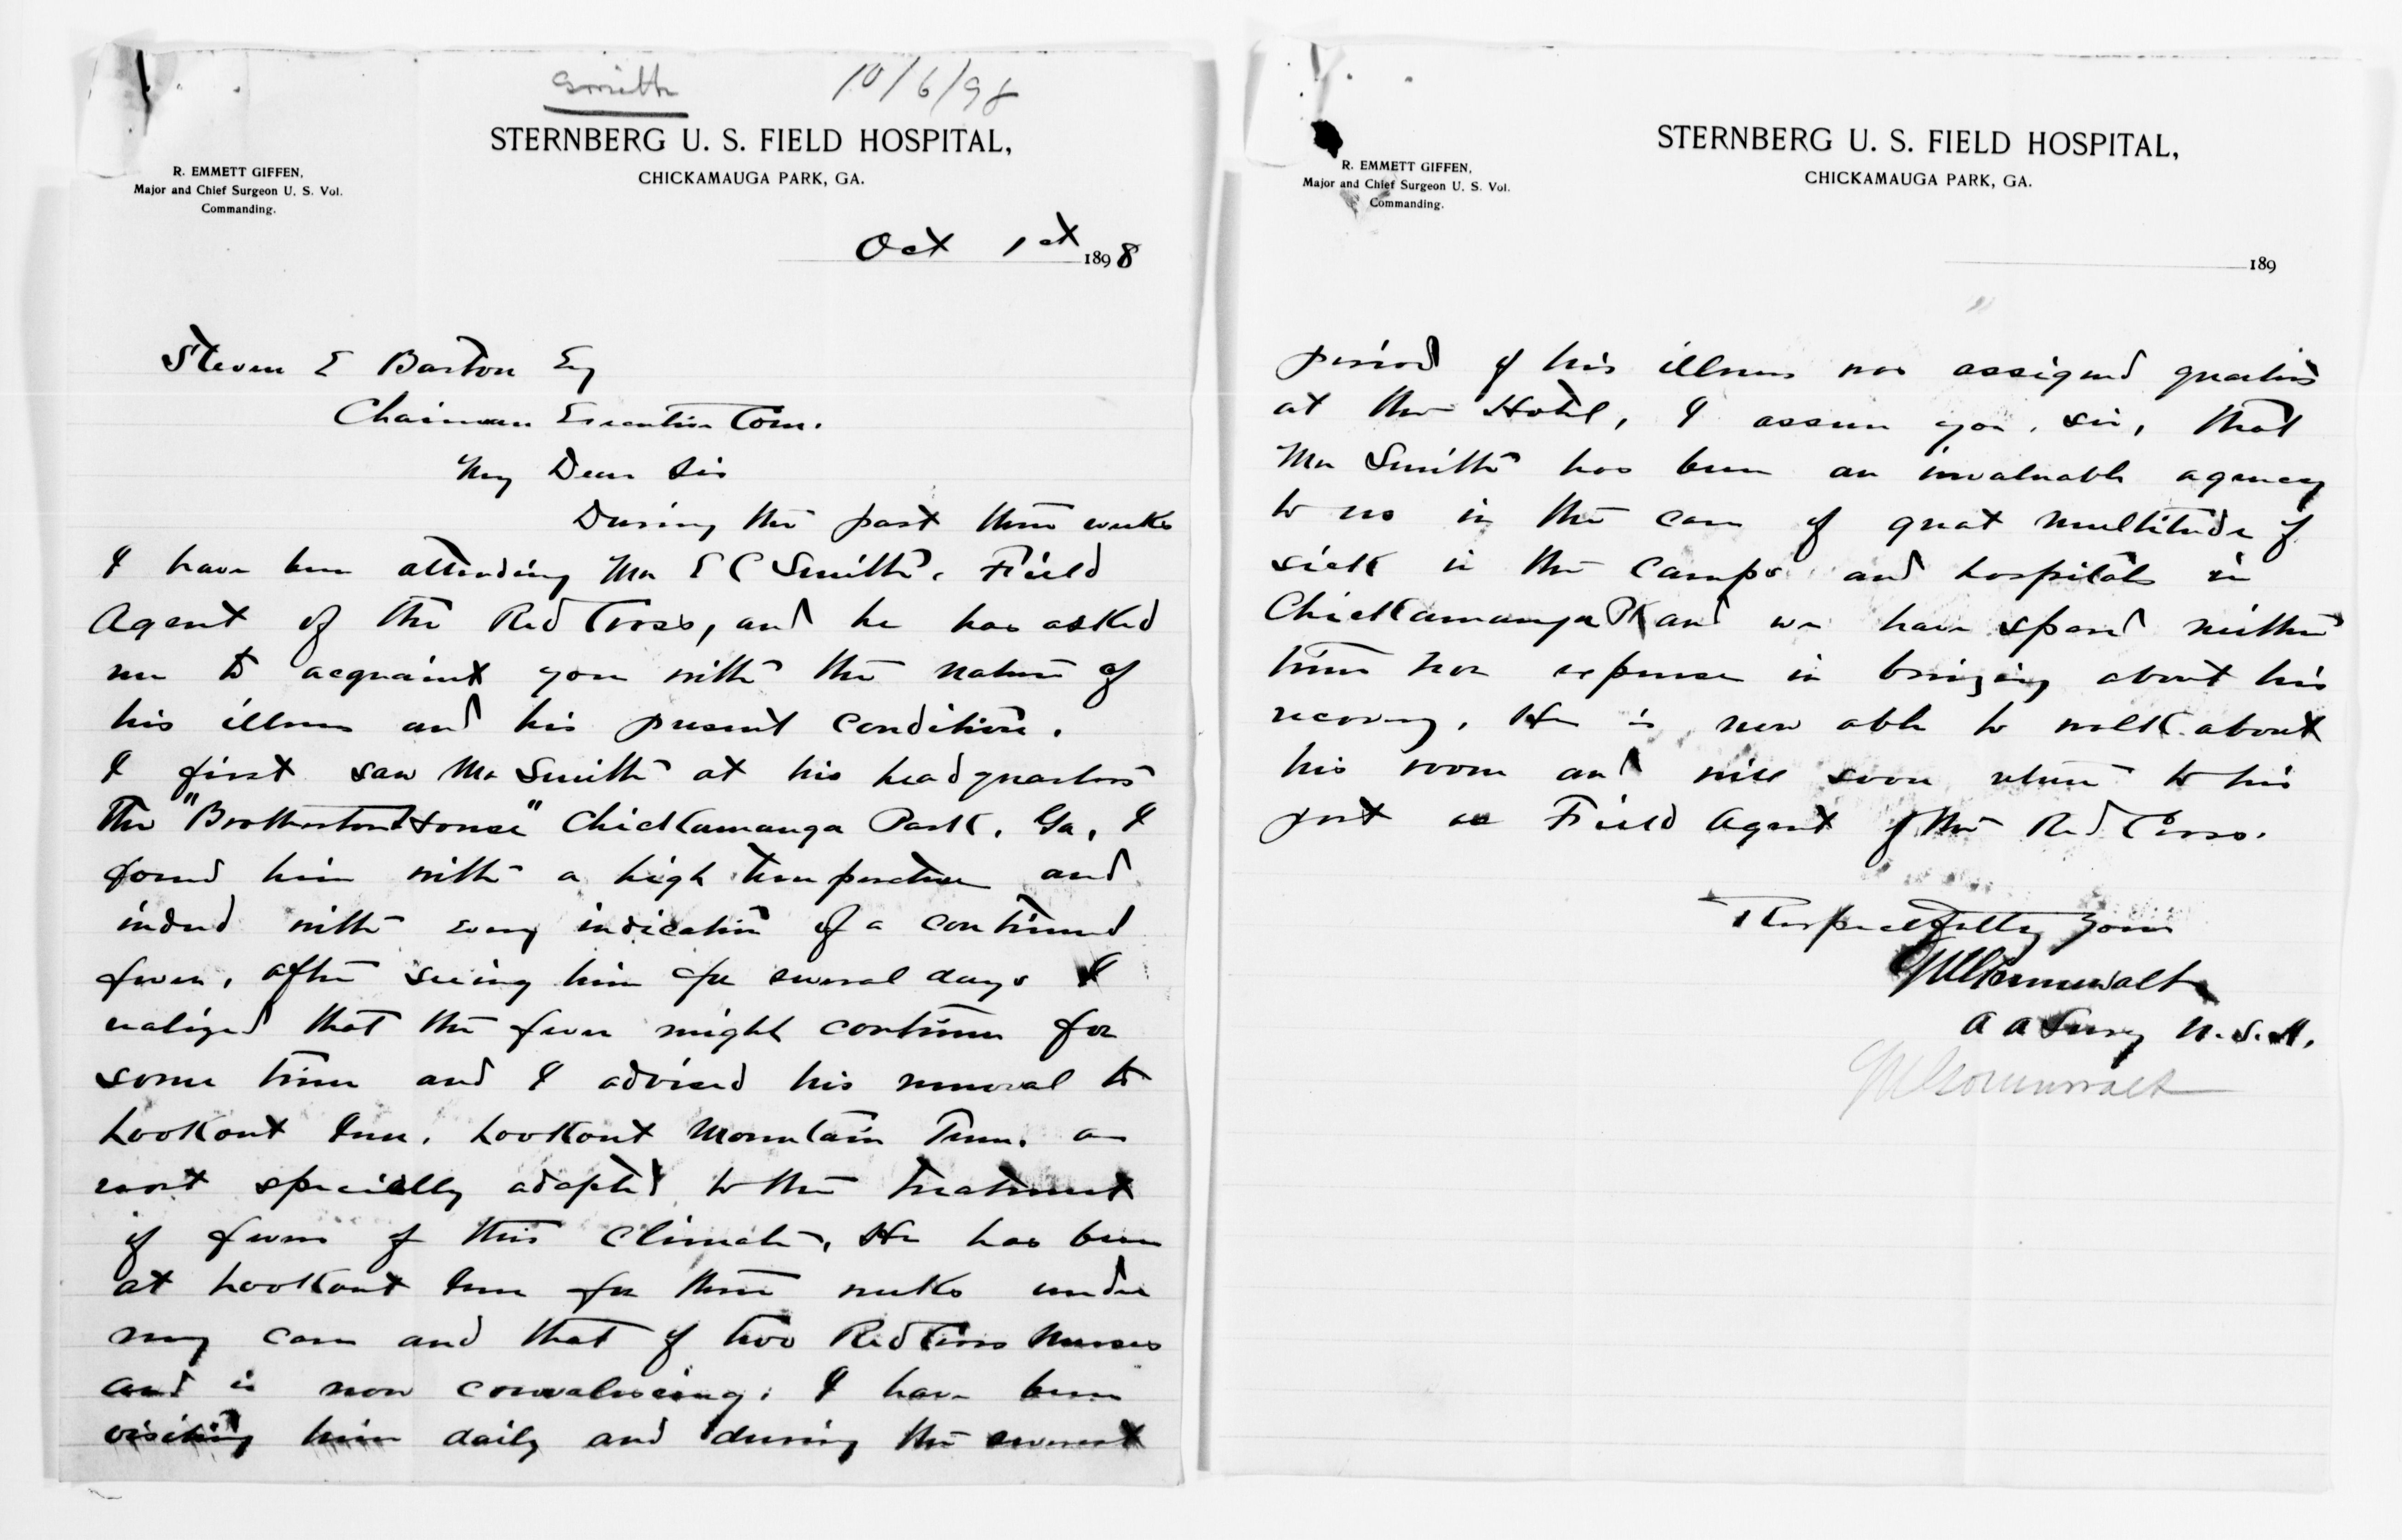 Smith 10/6/98
STERNBERG U. S. FIELD HOSPITAL,
CHICKAMAUGA PARK, GA.
R. EMMETT GIFFEN,
Major and Chief Surgeon U. S. Vol.
Commanding.
Oct 1st 1898
Steven E Barton Esq
Chairman Executive Com.
My Dear Sir
During the past three weeks
I have been attending Mr E C Smith, Field
Agent of the Red Cross, and he has asked
me to acquaint you with the nature of
his illness and his present condition.
I first saw Mr Smith at his headquarters
The "Brotherton House" Chickamauga Park, Ga, I
found him with a high temperature and
indeed with every indication of a continued
fever, After seeing him for several days I
realized that the fever might continue for
some time and I advised his removal to
Lookout Inn, Lookout Mountain Tenn. a
resort specially adapted to the treatment
of fevers of this climate, He has been
at Lookout Inn for three weeks under
my care and that of two Red Cross Nurses
and is now convalescing. I have been
visiting him daily and during the severest
STERNBERG U. S. FIELD HOSPITAL,
CHICKAMAUGA PARK, GA.
R. EMMETT GIFFEN,
Major and Chief Surgeon U. S. Vol.
Commanding.
189
period of his illness was assigned quarters
at the Hotel, I assure you, sir, that
Mr Smith has been an invaluable agency
to us in the care of great multitude of
sick in the camps and hospitals in
Chickamauga Pk and we have spared neither
time nor expense in bringing about his
recovery. He is now able to walk about
his room and will soon return to his
post as Field Agent of the Red Cross.
Respectfully Yours
A A Surg U.S.A.